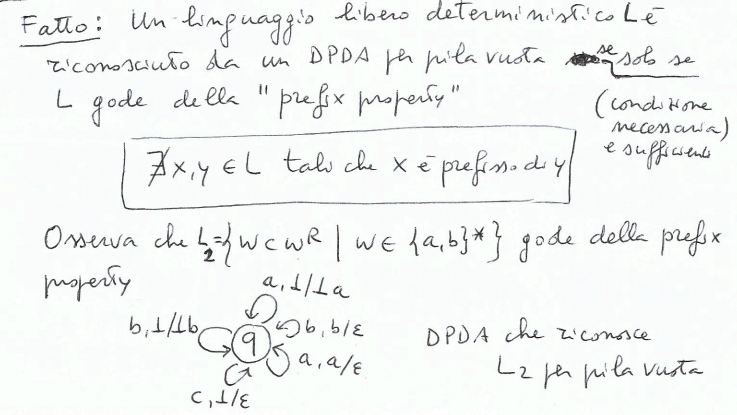 Fatto: Un linguaggio libero deterministico L è
riconosciuto da un DPDA per pila vuota se solo se
L gode della "prefix property"
(condizione
necessaria)
e sufficiente
∄x,y ∈ L tali che x è prefisso di y
Osserva che L₂={wcwᴿ | w ∈ {a,b}*} gode della prefix
property
a,⊥/⊥a
b,⊥/⊥b
b,b/ε
q
a,a/ε
c,⊥/ε
DPDA che riconosce
L₂ per pila vuota